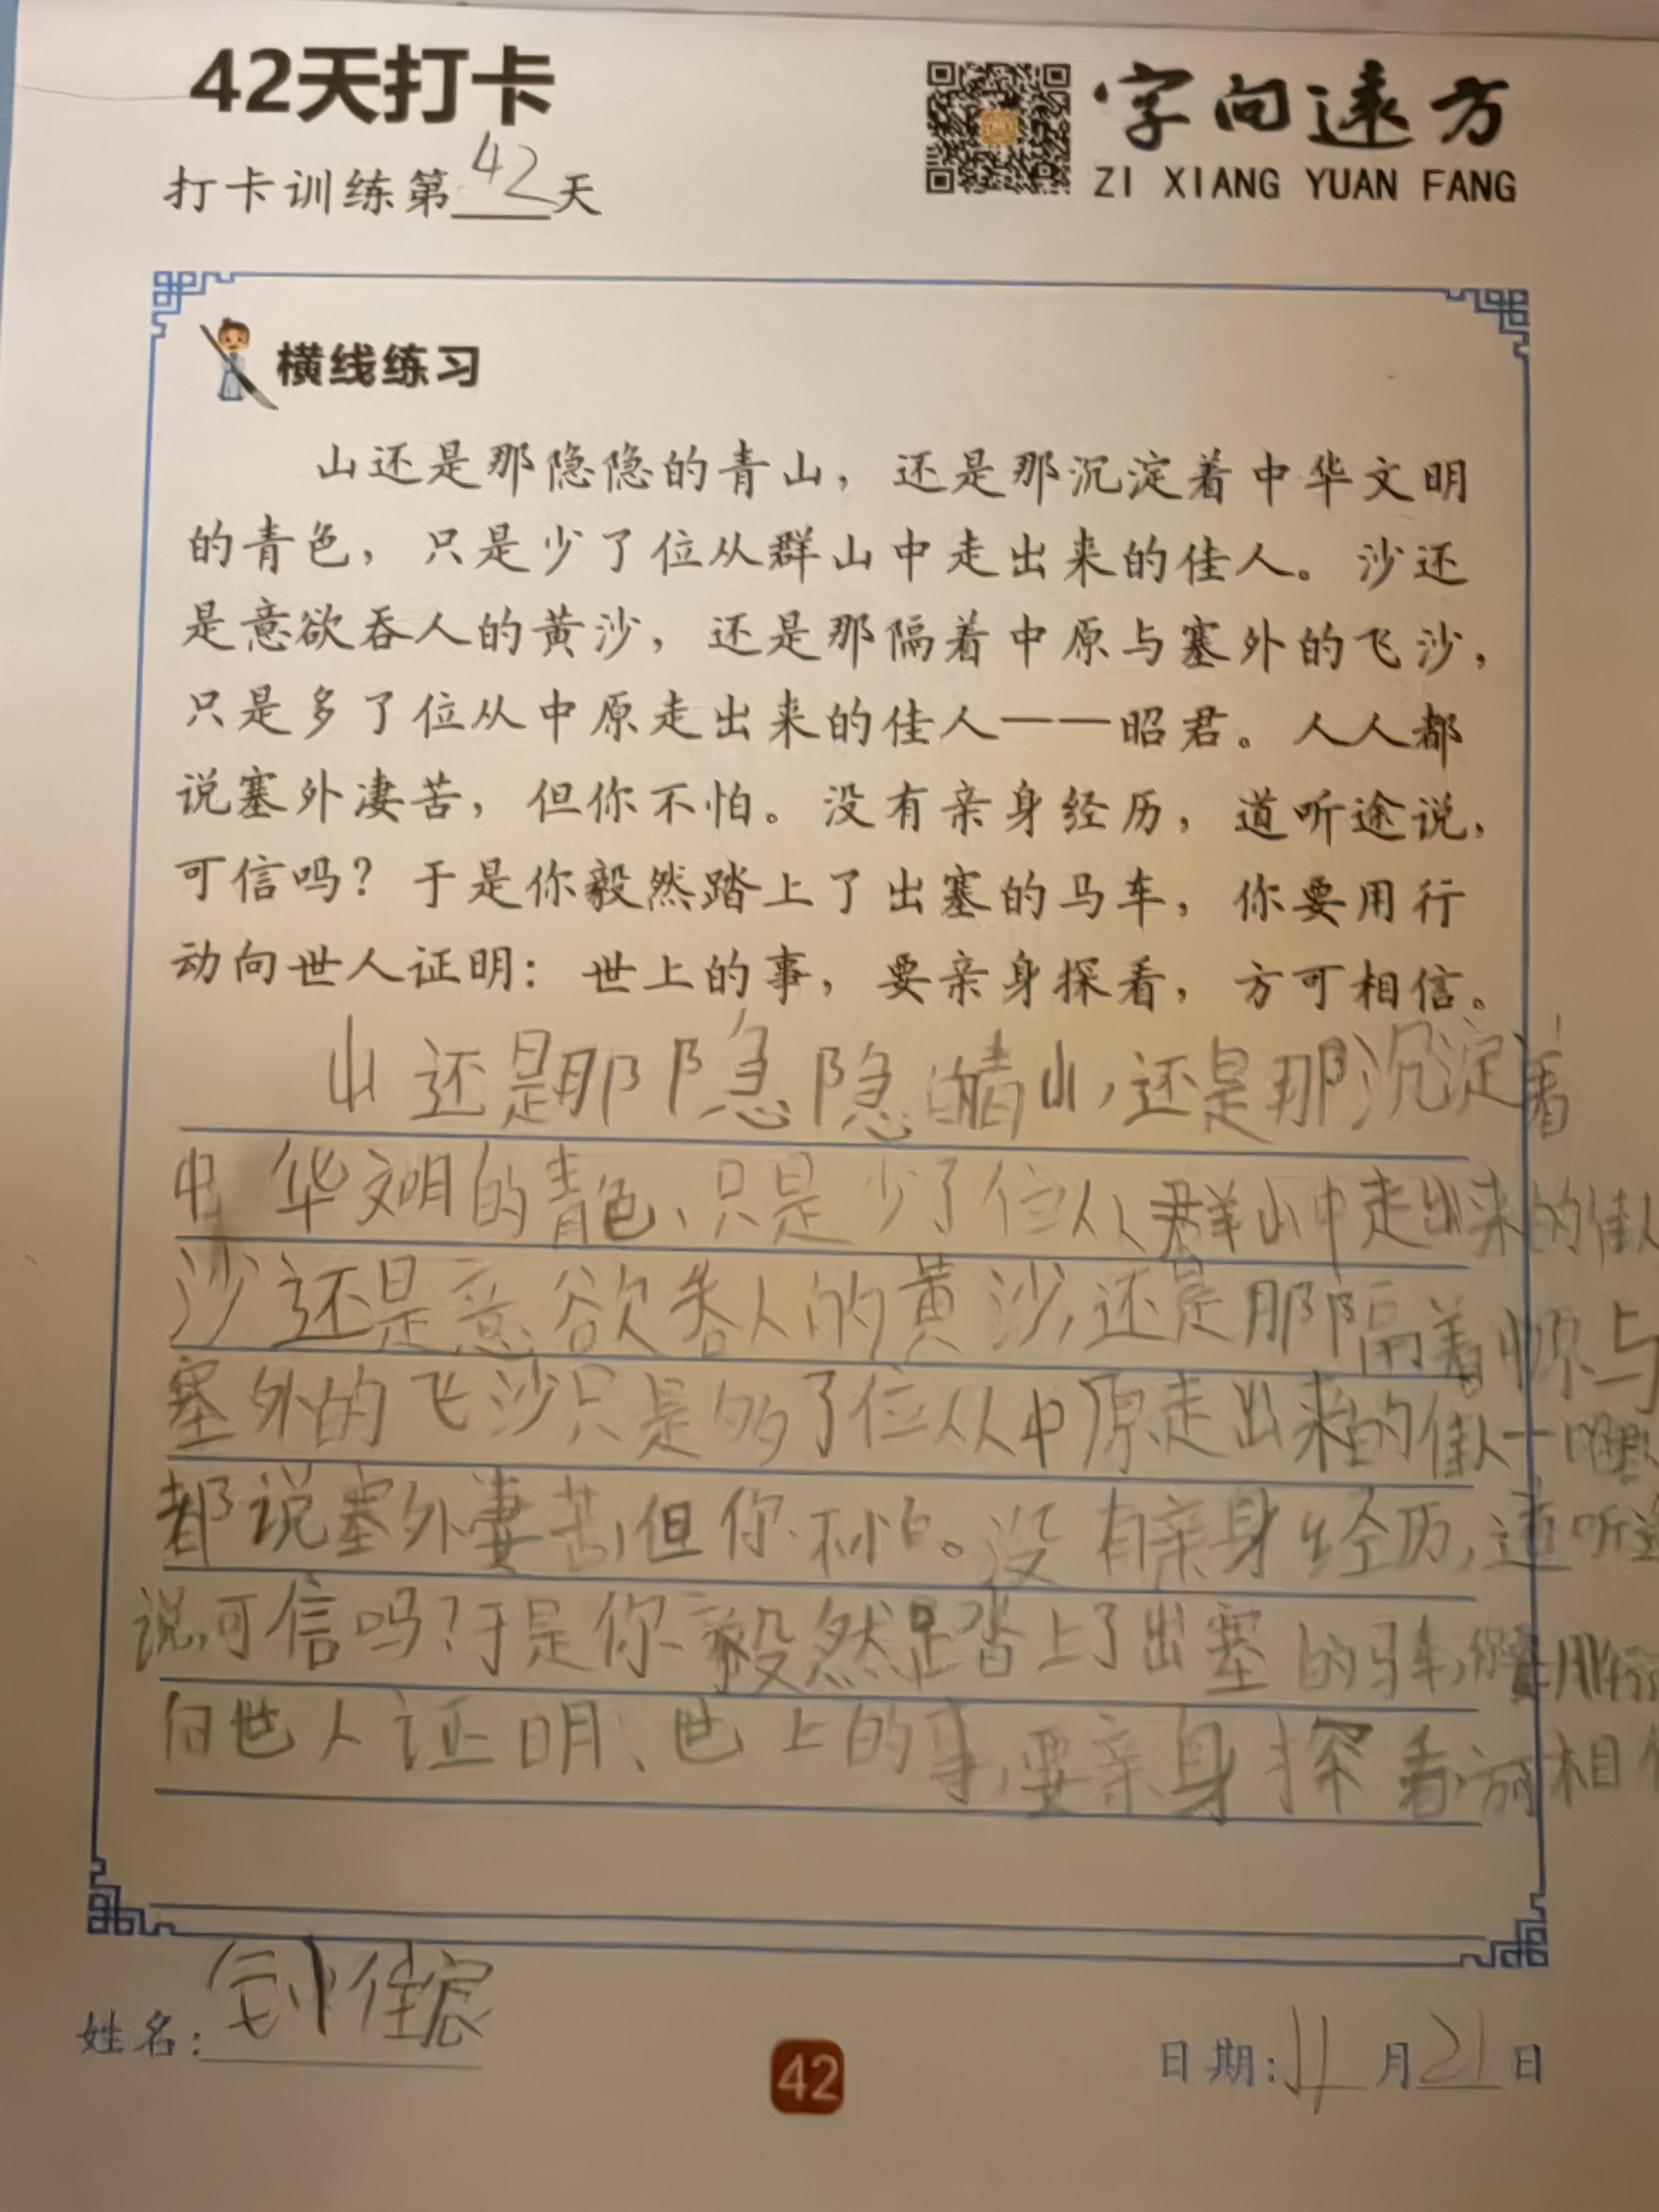 42天打卡
字向遠方
打卡训练第42天
ZI XIANG YUAN FANG
横线练习
山还是那隐隐的青山，还是那沉淀着中华文明
的青色，只是少了位从群山中走出来的佳人。沙还
是意欲吞人的黄沙，还是那隔着中原与塞外的飞沙，
只是多了位从中原走出来的佳人——昭君。人人都
说塞外凄苦，但你不怕。没有亲身经历，道听途说，
可信吗？于是你毅然踏上了出塞的马车，你要用行
动向世人证明：世上的事，要亲身探看，方可相信。
山还是那隐隐的青山，还是那沉淀着
中华文明的青色、只是少了位从群山中走出来的佳人
沙还是意欲吞人的黄沙，还是那隔着中原与
塞外的飞沙只是多了位从中原走出来的佳人一昭
都说塞外妻苦，但你不怕。没有亲身经历，道听途
说，可信吗？于是你毅然踏上了出塞的马车，你要用行
向世人证明：世上的事，要亲身探看，方可相信
姓名：刘佳宸
42
日期：11月21日